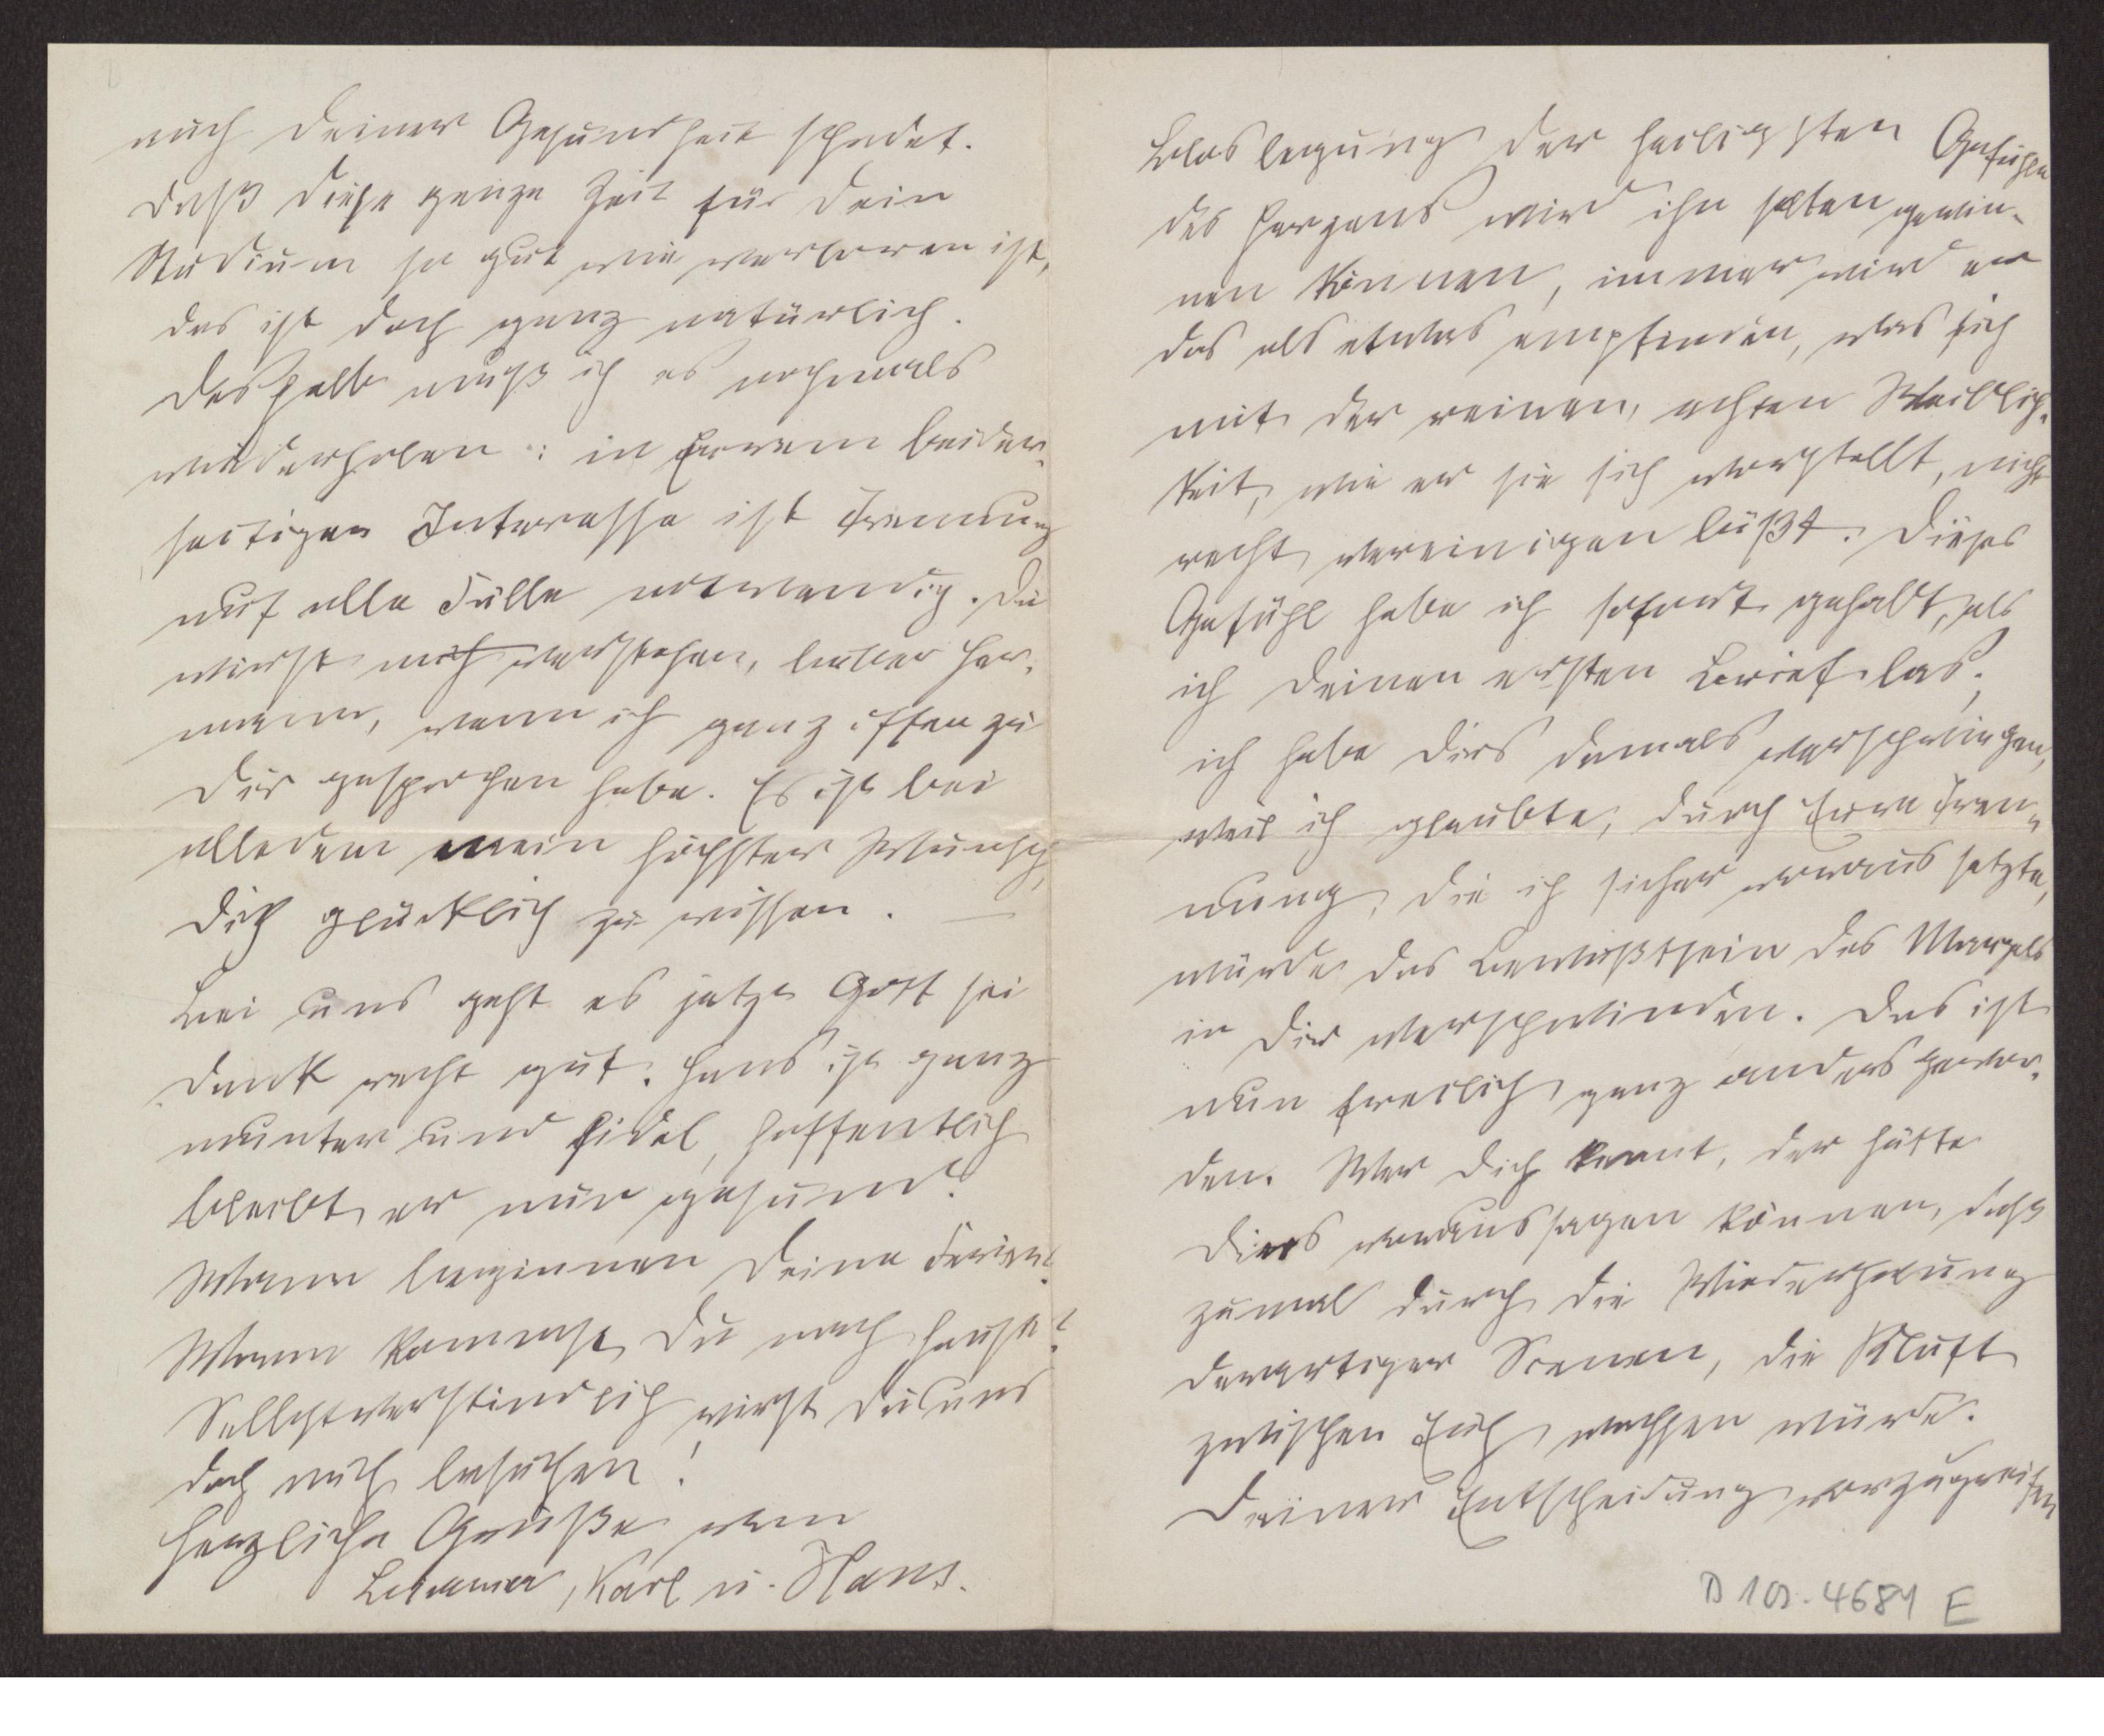 auch Deiner Gesundheit schadet.
Daß diese ganze Zeit für Dein
Studium so gut wie verloren ist,
das ist doch ganz natürlich.
Deshalb muß ich es nochmals
wiederholen: in Eurem beider-
seitigen Interesse ist Trennung
auf alle Fälle notwendig. Du
wirst mich verstehen, lieber Her-
mann, wenn ich ganz offen zu
Dir gesprochen habe. Es ist bei
alledem mein höchster Wunsch,
Dich glücklich zu wissen. —
Bei uns geht es jetzt Gott sei
Dank recht gut. Hans ist ganz
munter und fidel, hoffentlich
bleibt er nun gesund!
Wann beginnen Deine Ferien?
Wann kommst Du nach Hause?
Selbstverständlich wirst Du uns
doch auch besuchen!
Herzliche Grüße von
Karl u. Hans.
Bloslegung der heiligsten Gefühle
des Herzens wird ihn selten gewin-
nen können, immer wird er
das als etwas empfinden, was sich
mit der reinen, echten Weiblich-
keit, wie er sie sich vorstellt, nicht
recht vereinigen läßt. Dieses
Gefühl habe ich sofort gehabt, als
ich Deinen ersten Brief las;
ich habe Dirs damals verschwiegen,
weil ich glaubte, durch Eure Tren-
nung, die ich sicher voraus setzte,
würde das Bewußtsein des Mangels
in Dir verschwinden. Das ist
nun freilich ganz anders gewor-
den. Wer Dich kennt, der hätte
Dies voraussagen können, daß
zumal durch die Wiederholung
derartiger Scenen, die Kluft
zwischen Euch wachsen würde.
Deiner Entscheidung vorzugreifen
D 4684 E